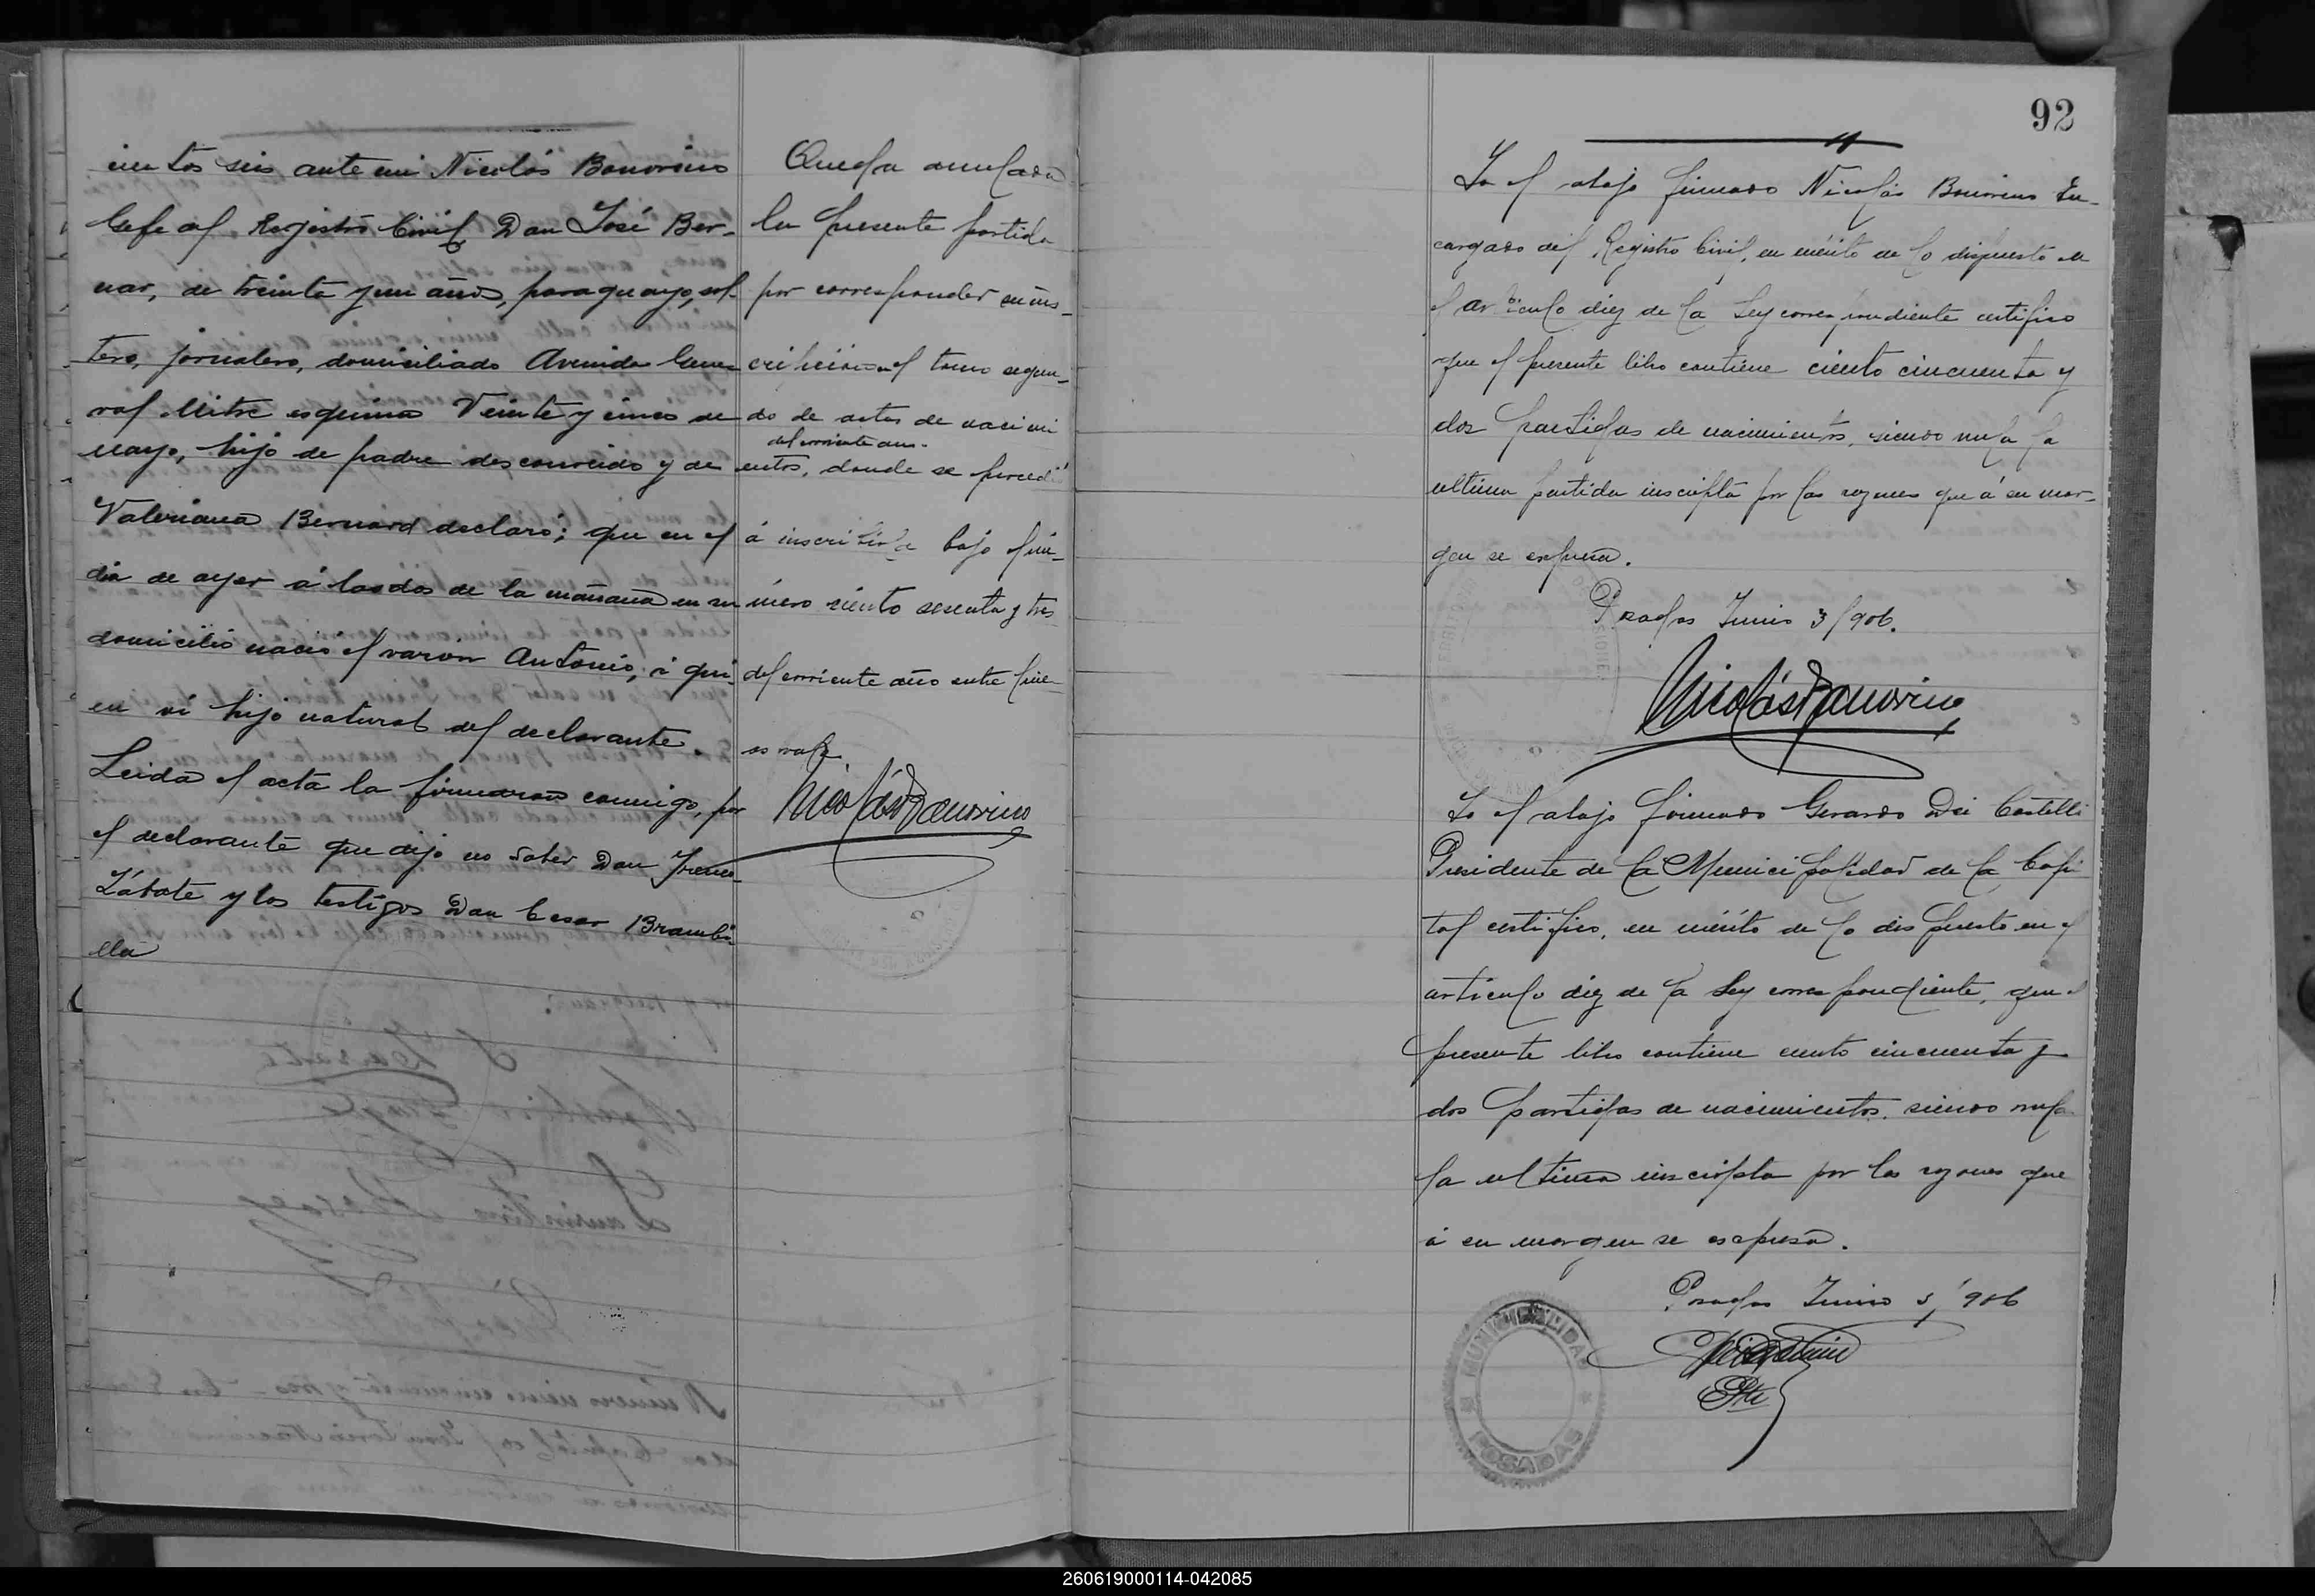 cientos seis ante mi Nicolás Bonorino
Gefe del Registro Civil, Don José Ber-
nar, de treinta y un años, paraguayo, sol-
tero, jornalero, domiciliado Avenida Gene-
ral Mitre esquina Veinte y cinco de
mayo, hijo de padre desconocido y de
Valeriana Bernard declaró; que en el
dia de ayer á las dos de la mañana en su
domicilio nació el varon Antonio, á qui-
en ví hijo natural del declarante.
Leida el acta la firmaron conmigo, por
el declarante que dijo no saber Don
Zárate y los testigos Don Cesar Brambi-
lla
Queda anulada
la presente partida
por corresponder su ins-
cripcion al tomo segun-
do de actas de nacimi
del corriente año.
entos, donde se procedió
á inscribirla bajo el nú-
mero ciento sesenta y tres
del corriente año entre line-
as vale.
Nicolás Bonorino
92
Yo el abajo firmado Nicolás Bonorino En-
cargado del Registro Civil, en mérito de lo dispuesto en
el articulo diez de la Ley correspondiente certifico
que el presente libro contiene ciento cincuenta y
dos partidas de nacimientos, siendo nula la
ultima partida inscripta por las razones que á su mar-
gen se expresa.
Posadas Junio 3/906.
Nicolás Bonorino
Yo el abajo firmado Gerardo Dei Castelli
Presidente de la Municipalidad de la Capi
tal certifico, en mérito de lo dispuesto en el
articulo diez de la Ley correspondiente, que el
presente libro contiene ciento cincuenta y
dos partidas de nacimientos, siendo nula
la ultima inscripta por las razones que
á su margen se expresa.
Posadas Junio 3/906
Pte
MUNICIPALIDAD
POSADAS
260619000114-042085